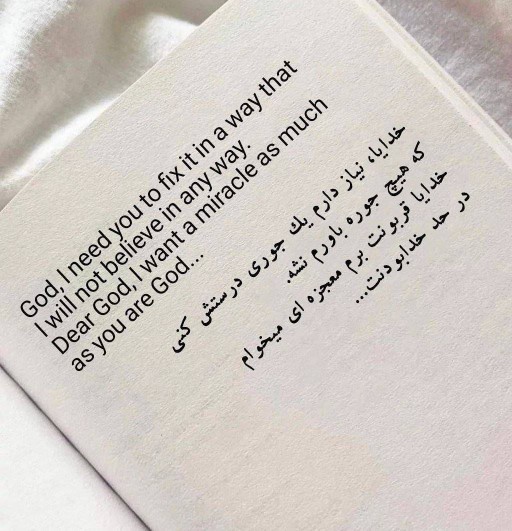 God, I need you to fix it in a way that
I will not believe in any way.
Dear God, I want a miracle as much
as you are God...
خدایا، نیاز دارم یك جوری درستش كنی
كه هیچ جوره باورم نشه.
خدایا قربونت برم معجزه ای میخوام
در حد خدابودنت...